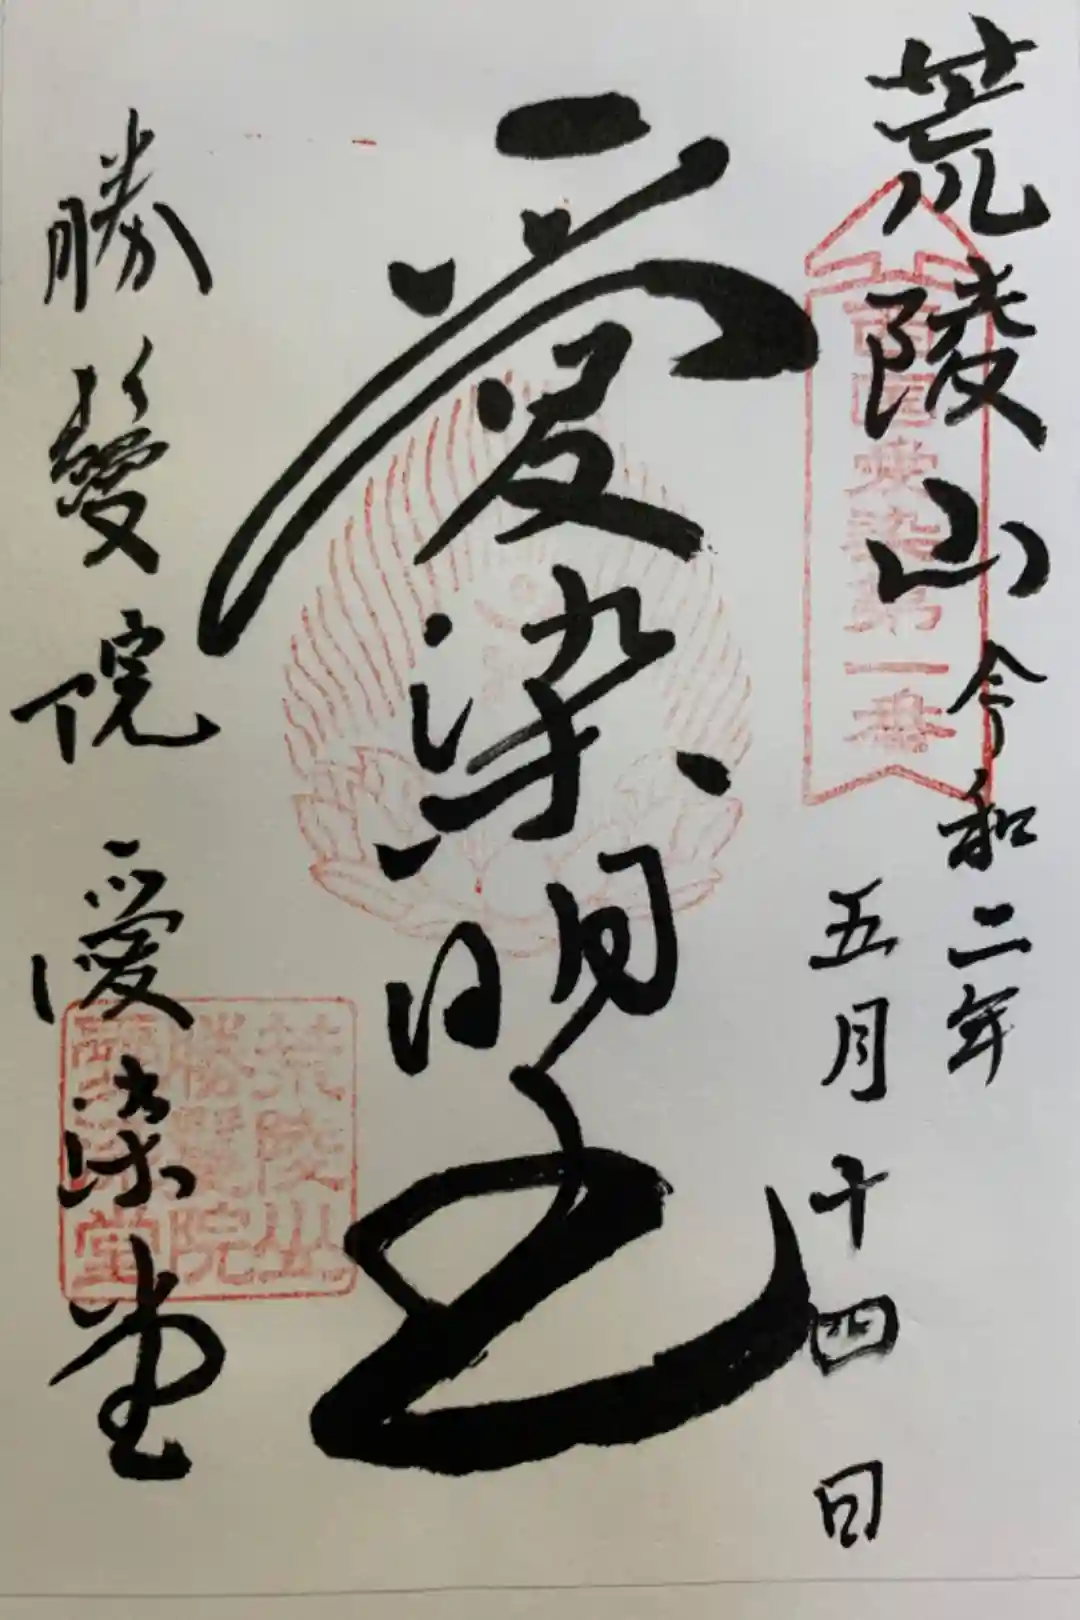 荒陵山 令和二年
五月十四日
西国愛染第一番
愛染明王
勝鬘院 愛染堂
荒陵山
勝鬘院
愛染堂